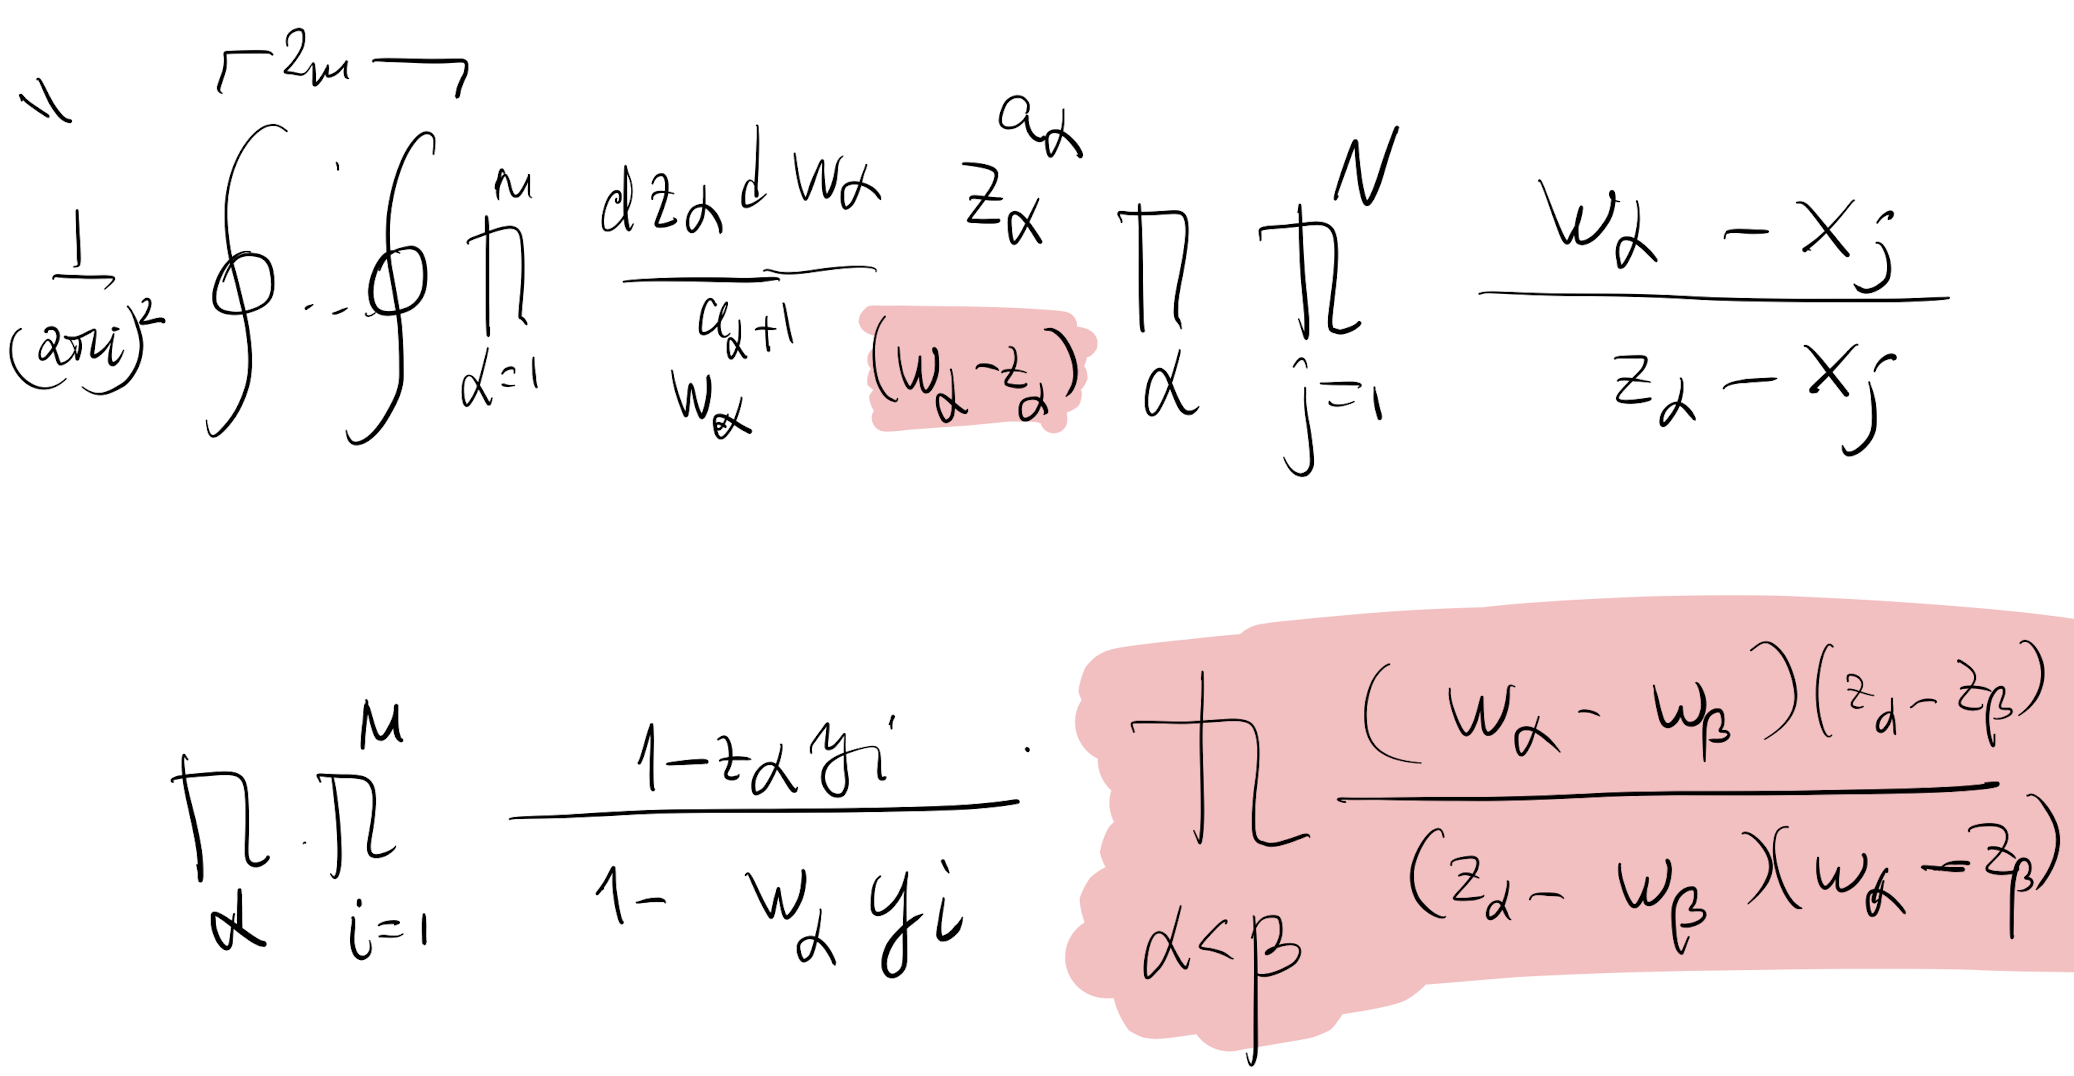 = \frac{1}{(2\pi i)^2} \overbrace{\oint \cdots \oint}^{2m} \prod_{\alpha=1}^{m} \frac{dz_\alpha dw_\alpha}{w_\alpha^{a_\alpha+1} (w_\alpha - z_\alpha)} z_\alpha^{a_\alpha} \prod_{\alpha} \prod_{j=1}^{N} \frac{w_\alpha - x_j}{z_\alpha - x_j}
\prod_{\alpha} \cdot \prod_{i=1}^{M} \frac{1 - z_\alpha y_i}{1 - w_\alpha y_i} \cdot \prod_{\alpha<\beta} \frac{(w_\alpha - w_\beta)(z_\alpha - z_\beta)}{(z_\alpha - w_\beta)(w_\alpha - z_\beta)}